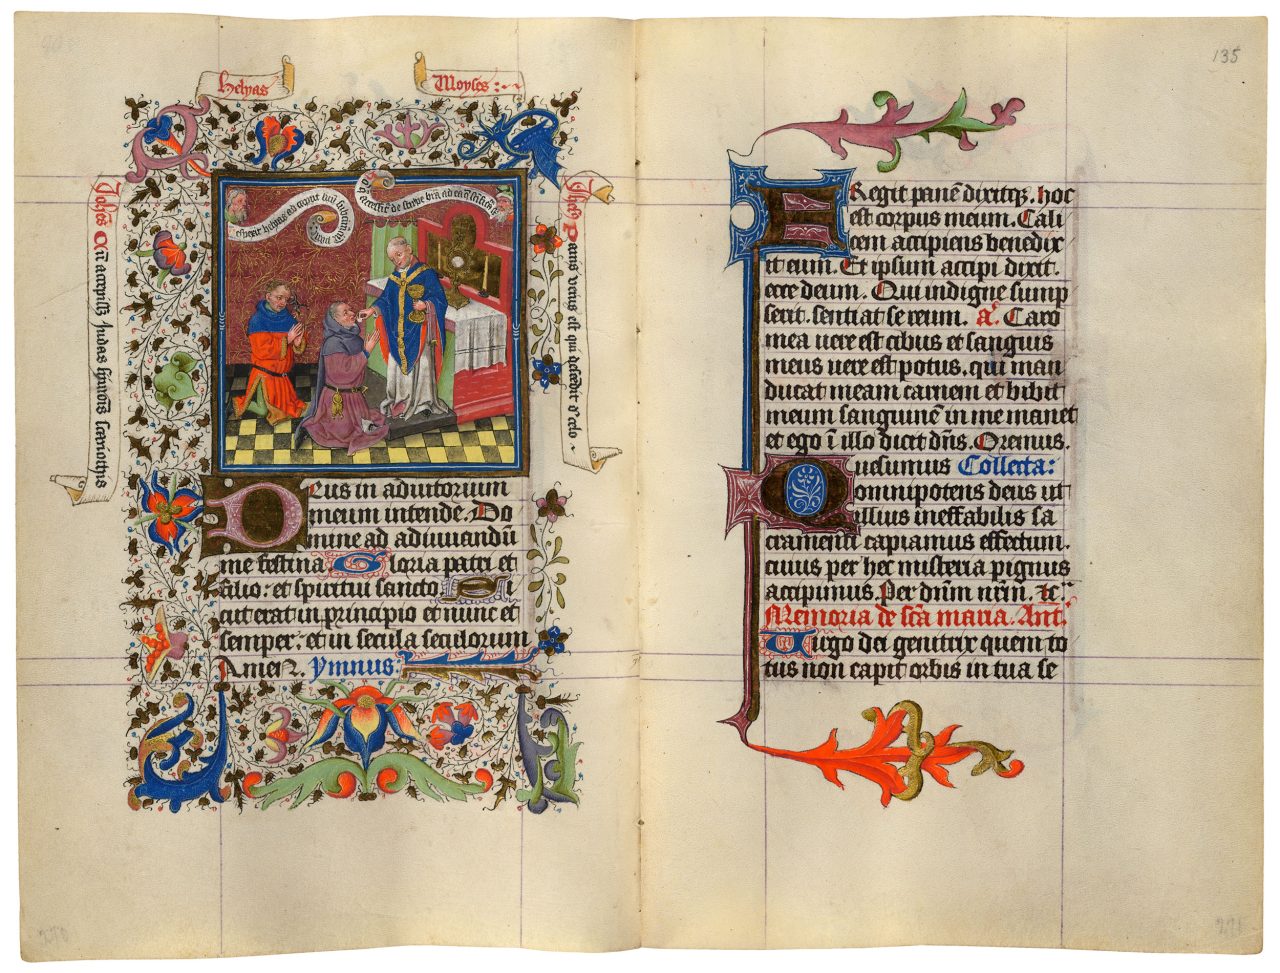 Helyas
Moyses:
Johes Cū accepiss; Judas symōis scariothis
Jhes Panis verus est qui descēdit d' celo
Deus in adiutorium
meum intende. Do
mine ad adiuuandū
me festina Gloria patri et
filio: et spiritui sancto. Si
cut erat in principio et nunc et
semper: et in secula seculorum
Amen. ymnus:
135
Fregit panē dixitq3. hoc
est corpus meum. Cali
cem accipiens benedix
it eum. Et ipsum accipi dixit.
ecce deum. Qui indigne sump
serit. sentiat se reum. a. Caro
mea uere est cibus et sanguis
meus uere est potus, qui man
ducat meam carnem et bibit
meum sanguinē in me manet
et ego ī illo dicit dn̄s. Oremus.
Quesumus Collecta:
omnipotens deus ut
illius ineffabilis sa
cramenti capiamus effectum.
cuius per hec misteria pignus
accipimus. Per dn̄m nr̄m. &c.
Memoria de scā maria. Ant.
Uirgo dei genitrix quem to
tus non capit orbis in tua se
270
271